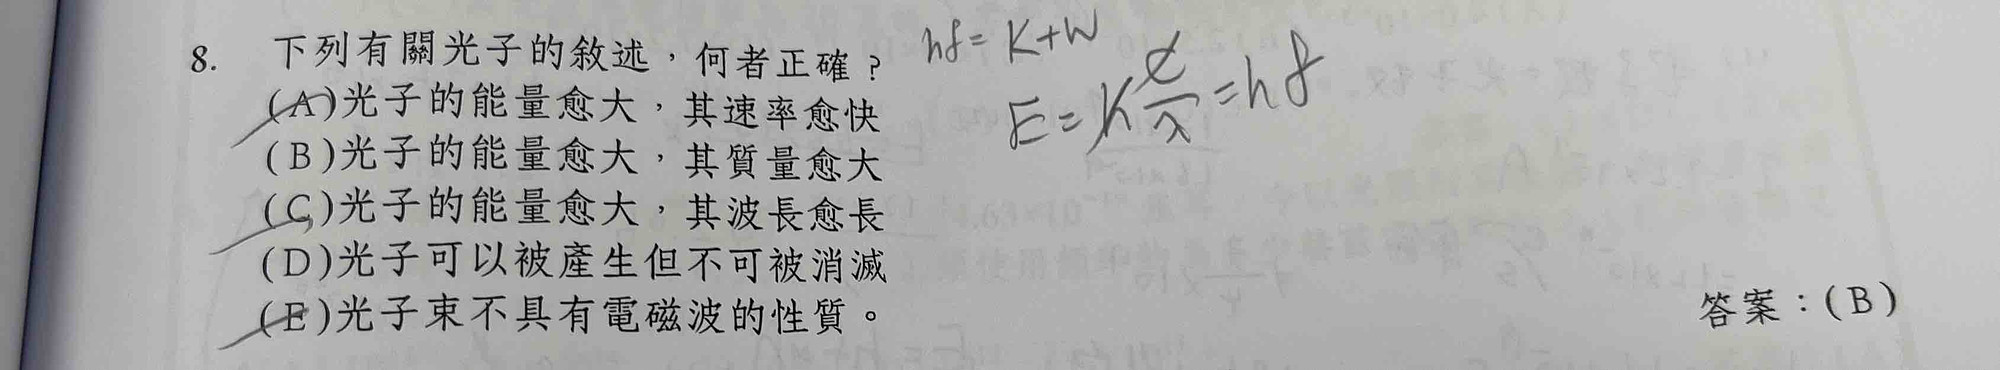 8. 下列有關光子的敘述，何者正確？
hf = K+W
(A)光子的能量愈大，其速率愈快
E = h c/λ = hf
(B)光子的能量愈大，其質量愈大
(C)光子的能量愈大，其波長愈長
(D)光子可以被產生但不可被消滅
(E)光子束不具有電磁波的性質。
答案：(B)